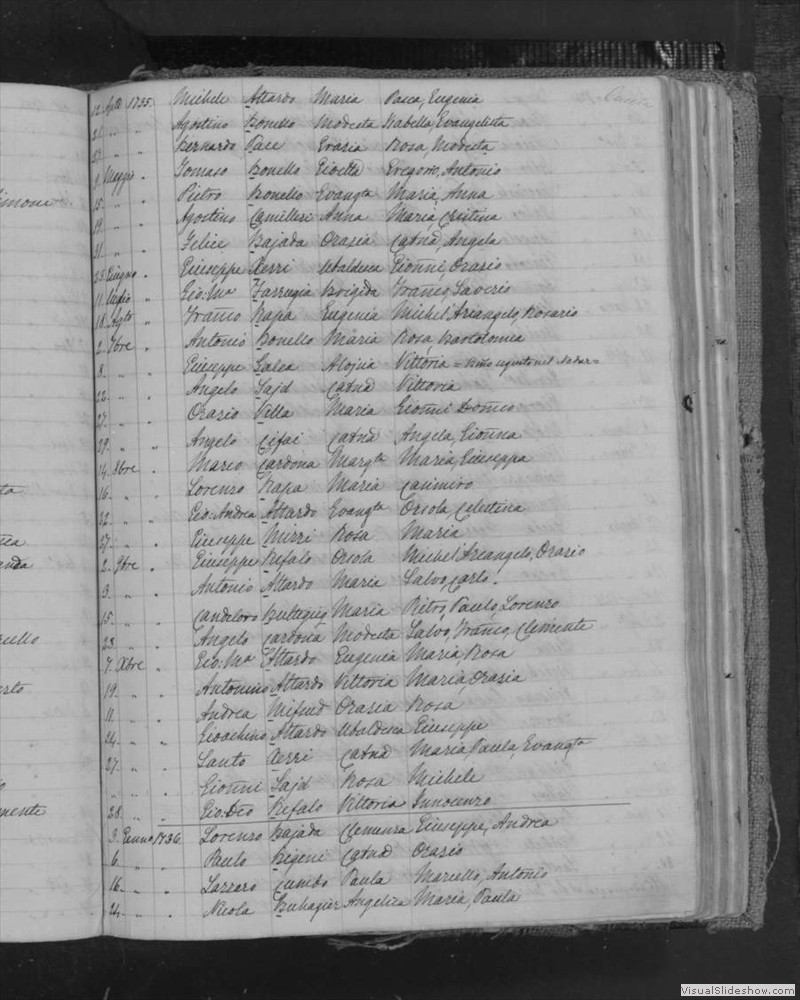 12. Aple 1735. Michele Attardo Maria Pasca, Eugenia
21. " " Agostino Bonello Modesta Isabella, Evangelista
27. " " Bernardo Pace Grazia Rosa, Modesta
9. Maggio " Tomaso Bonello Gioetta Gregorio, Antonio
15. " " Pietro Bonello Evangta Maria, Anna
19. " " Agostino Camilleri Anna Maria, Cristina
31. " " Felice Bajada Orazia Catna, Angela
23. Giugno " Giuseppe Xerri Ubaldesca Gionni, Orazio
11. Luglio " Gio: Ma Farrugia Brigida Franco, Saverio
18. Agto " Franco Rapa Eugenia Michel'Arcangelo, Rosario
2. 7bre " Antonio Bonello Maria Rosa, Bartolomea
8. " " Giuseppe Galea Aloisia Vittoria
22. " " Angelo Sajd Catna Vittoria
27. " " Orazio Vella Maria Gionni Domco
29. " " Angelo Cifai Catna Angela, Gionna
14. 8bre " Marco Cardona Margta Maria, Giuseppa
16. " " Lorenzo Rapa Maria Casimiro
22. " " Gio: Andrea Attardo Evangta Orsola, Celestina
27. " " Giuseppe Mizzi Rosa Maria
2. 9bre " Giuseppe Refalo Orsola Michel'Arcangelo, Orazio
3. " " Antonio Attardo Maria Salvo, Carlo.
15. " " Candeloro Buttigieg Maria Pietro, Paulo, Lorenzo
23. " " Angelo Cardona Modesta Salvo, Franco, Clemente
7. Xbre " Gio: Ma Attardo Eugenia Maria, Rosa
19. " " Antonino Attardo Vittoria Maria, Orazia
11. " " Andrea Mifsud Orazia Rosa
24. " " Gioachino Attardo Ubaldesca Giuseppe
27. " " Santo Xerri Catna Maria, Paula, Evangta
" " " Gionni Sajd Rosa Michele
28. " " Gio: Deo Refalo Vittoria Innocenzo
3. Genno 1736. Lorenzo Bajada Clemenza Giuseppe, Andrea
6. " " Paulo Bigeni Catna Orazio
16. " " Lazzaro Cumbo Paula Marcello, Antonio
24. " " Nicola Buhagier Angelica Maria, Paula
VisualSlideshow.com